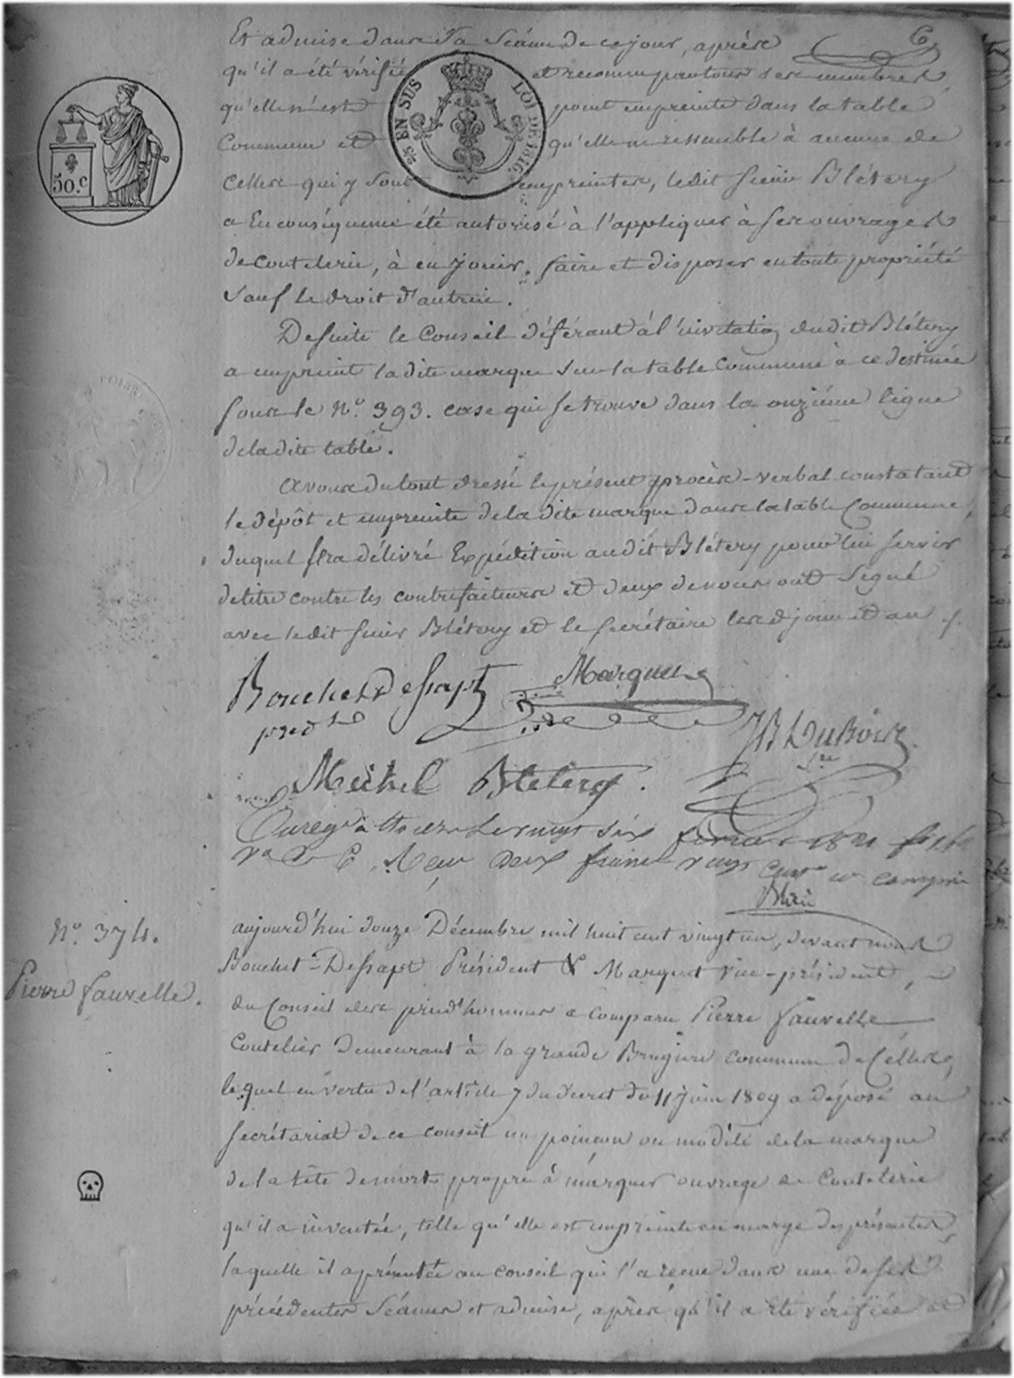 Et admise dans sa Séance de ce jour, après
qu'il a été vérifié et reconnu par tous ses membres
qu'elle n'est point empreinte dans la table
Commune et qu'elle ne ressemble à aucune de
Celles qui y sont empreintes, ledit sieur Blétery
a En conséquence été autorisé à l'appliquer à ses ouvrages
de Coutelerie, à en Jouir, faire et disposer en toute propriété
Sauf le droit d'autrui.
50.C
EN SUS LOI DE 1816
De suite le Conseil déférant à l'invitation dudit Blétery
a empreint la dite marque sur la table Commune à ce destinée
sous le N.o 393. case qui se trouve dans la onzième ligne
de la dite table.
avons du tout dressé le présent procès-verbal constatant
le dépôt et empreinte de la dite marque dans la table Commune,
duquel sera délivré Expédition audit Blétery pour lui servir
de titre contre les contrefacteurs et deux de nous ont Signé
avec ledit sieur Blétery et le secrétaire lesd jour et an
Bouchet Dessapt
Marquet
présdt
JB Dubois
Sre
Michel Bletery.
Enregé à Thiers Le vingt six 1821
Vo Reçu deux francs vingt centes
N.o 374.
Pierre Fauvelle.
aujourd'hui douze Décembre mil huit cent vingt un, devant nous
Bouchet-Dessapt Président & Marquet vice-président,
du Conseil des prud'hommes a comparu Pierre Fauvelle
Coutelier demeurant à la grande Brugière commune de Celles,
lequel en vertu de l'article 7 du décret du 11 juin 1809 a déposé au
secrétariat de ce conseil un poincon ou modèle de la marque
de la tête de mort propre à marquer ouvrage de Coutelerie
qu'il a inventée, telle qu'elle est empreinte en marge des présentes,
laquelle il a présentée au conseil qui l'a reçue dans une de ses
précédentes Séances et admise, après qu'il a été vérifié et